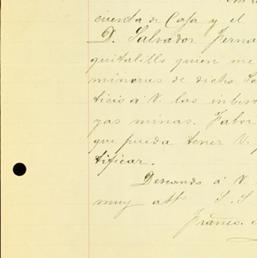 cuenta de Caja y el
D. Salvador Ferna
quitalillo quien me
mineras de dicho Se
ticio á V. las inbest
gas minas. Fabor
que pueda tener V. y
tificar.
Deseando á V.
muy attº S. S.
Franco.